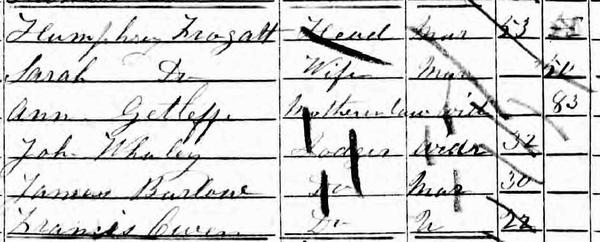 Humphrey Fragatt Head Mar 53
Sarah Do Wife Mar 50
Ann Getleffe Mother in law Wid 83
John Whaley Lodger Widr 32
James Barlow Do Mar 30
Francis Owen Do U 22